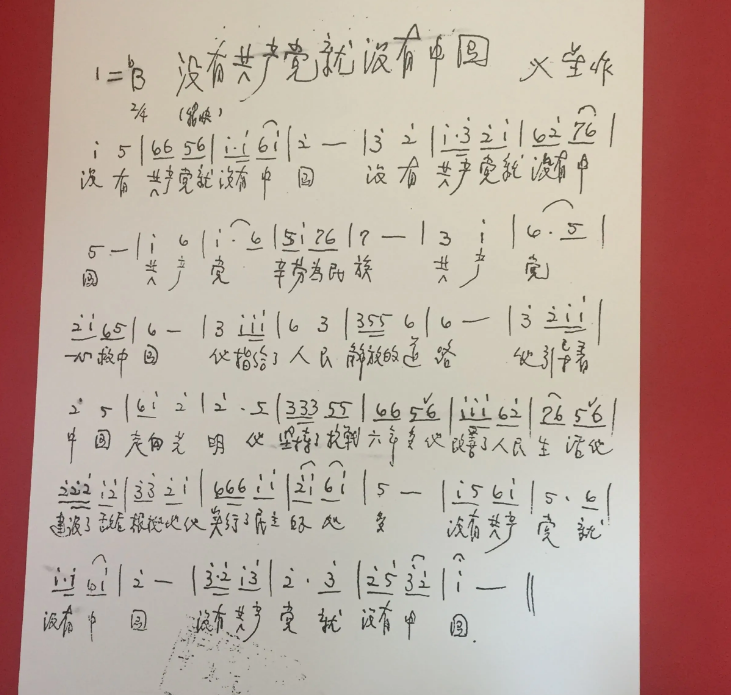 1=ᵇB 没有共产党就没有中国 火星作
2/4 (稍快)
i 5 | 66 56 | i·i 6i | 2 — | 3 2 | i·3 2i | 62 76 |
没有 共产党就没有中 国 没有 共产党就没有中
5 — | i 6 | i· 6 | 5i 76 | 7 — | 3 i | 6· 5 |
国 共产 党 辛劳为民族 共产 党
2i 65 | 6 — | 3 iii | 6 3 | 355 6 | 6 — | 3 2ii |
一心救中国 他指给了人民 解放的道路 他引导着
2 5 | 6i 2 | 2· 5 | 333 55 | 66 56 | iii 62 | 76 56 |
中国 走向光明 他 坚持了抗战 六年多他 改善了人民生活他
222 i2 | 33 2i | 666 ii | 2i 6i | 5 — | i5 6i | 5· 6 |
建设了敌后根据地他实行了民主好处 多 没有共产党就
i·i 6i | 2 — | 3·2 i3 | 2· 3 | 25 32 | i — ‖
没有中 国 没有共产 党 就 没有中 国